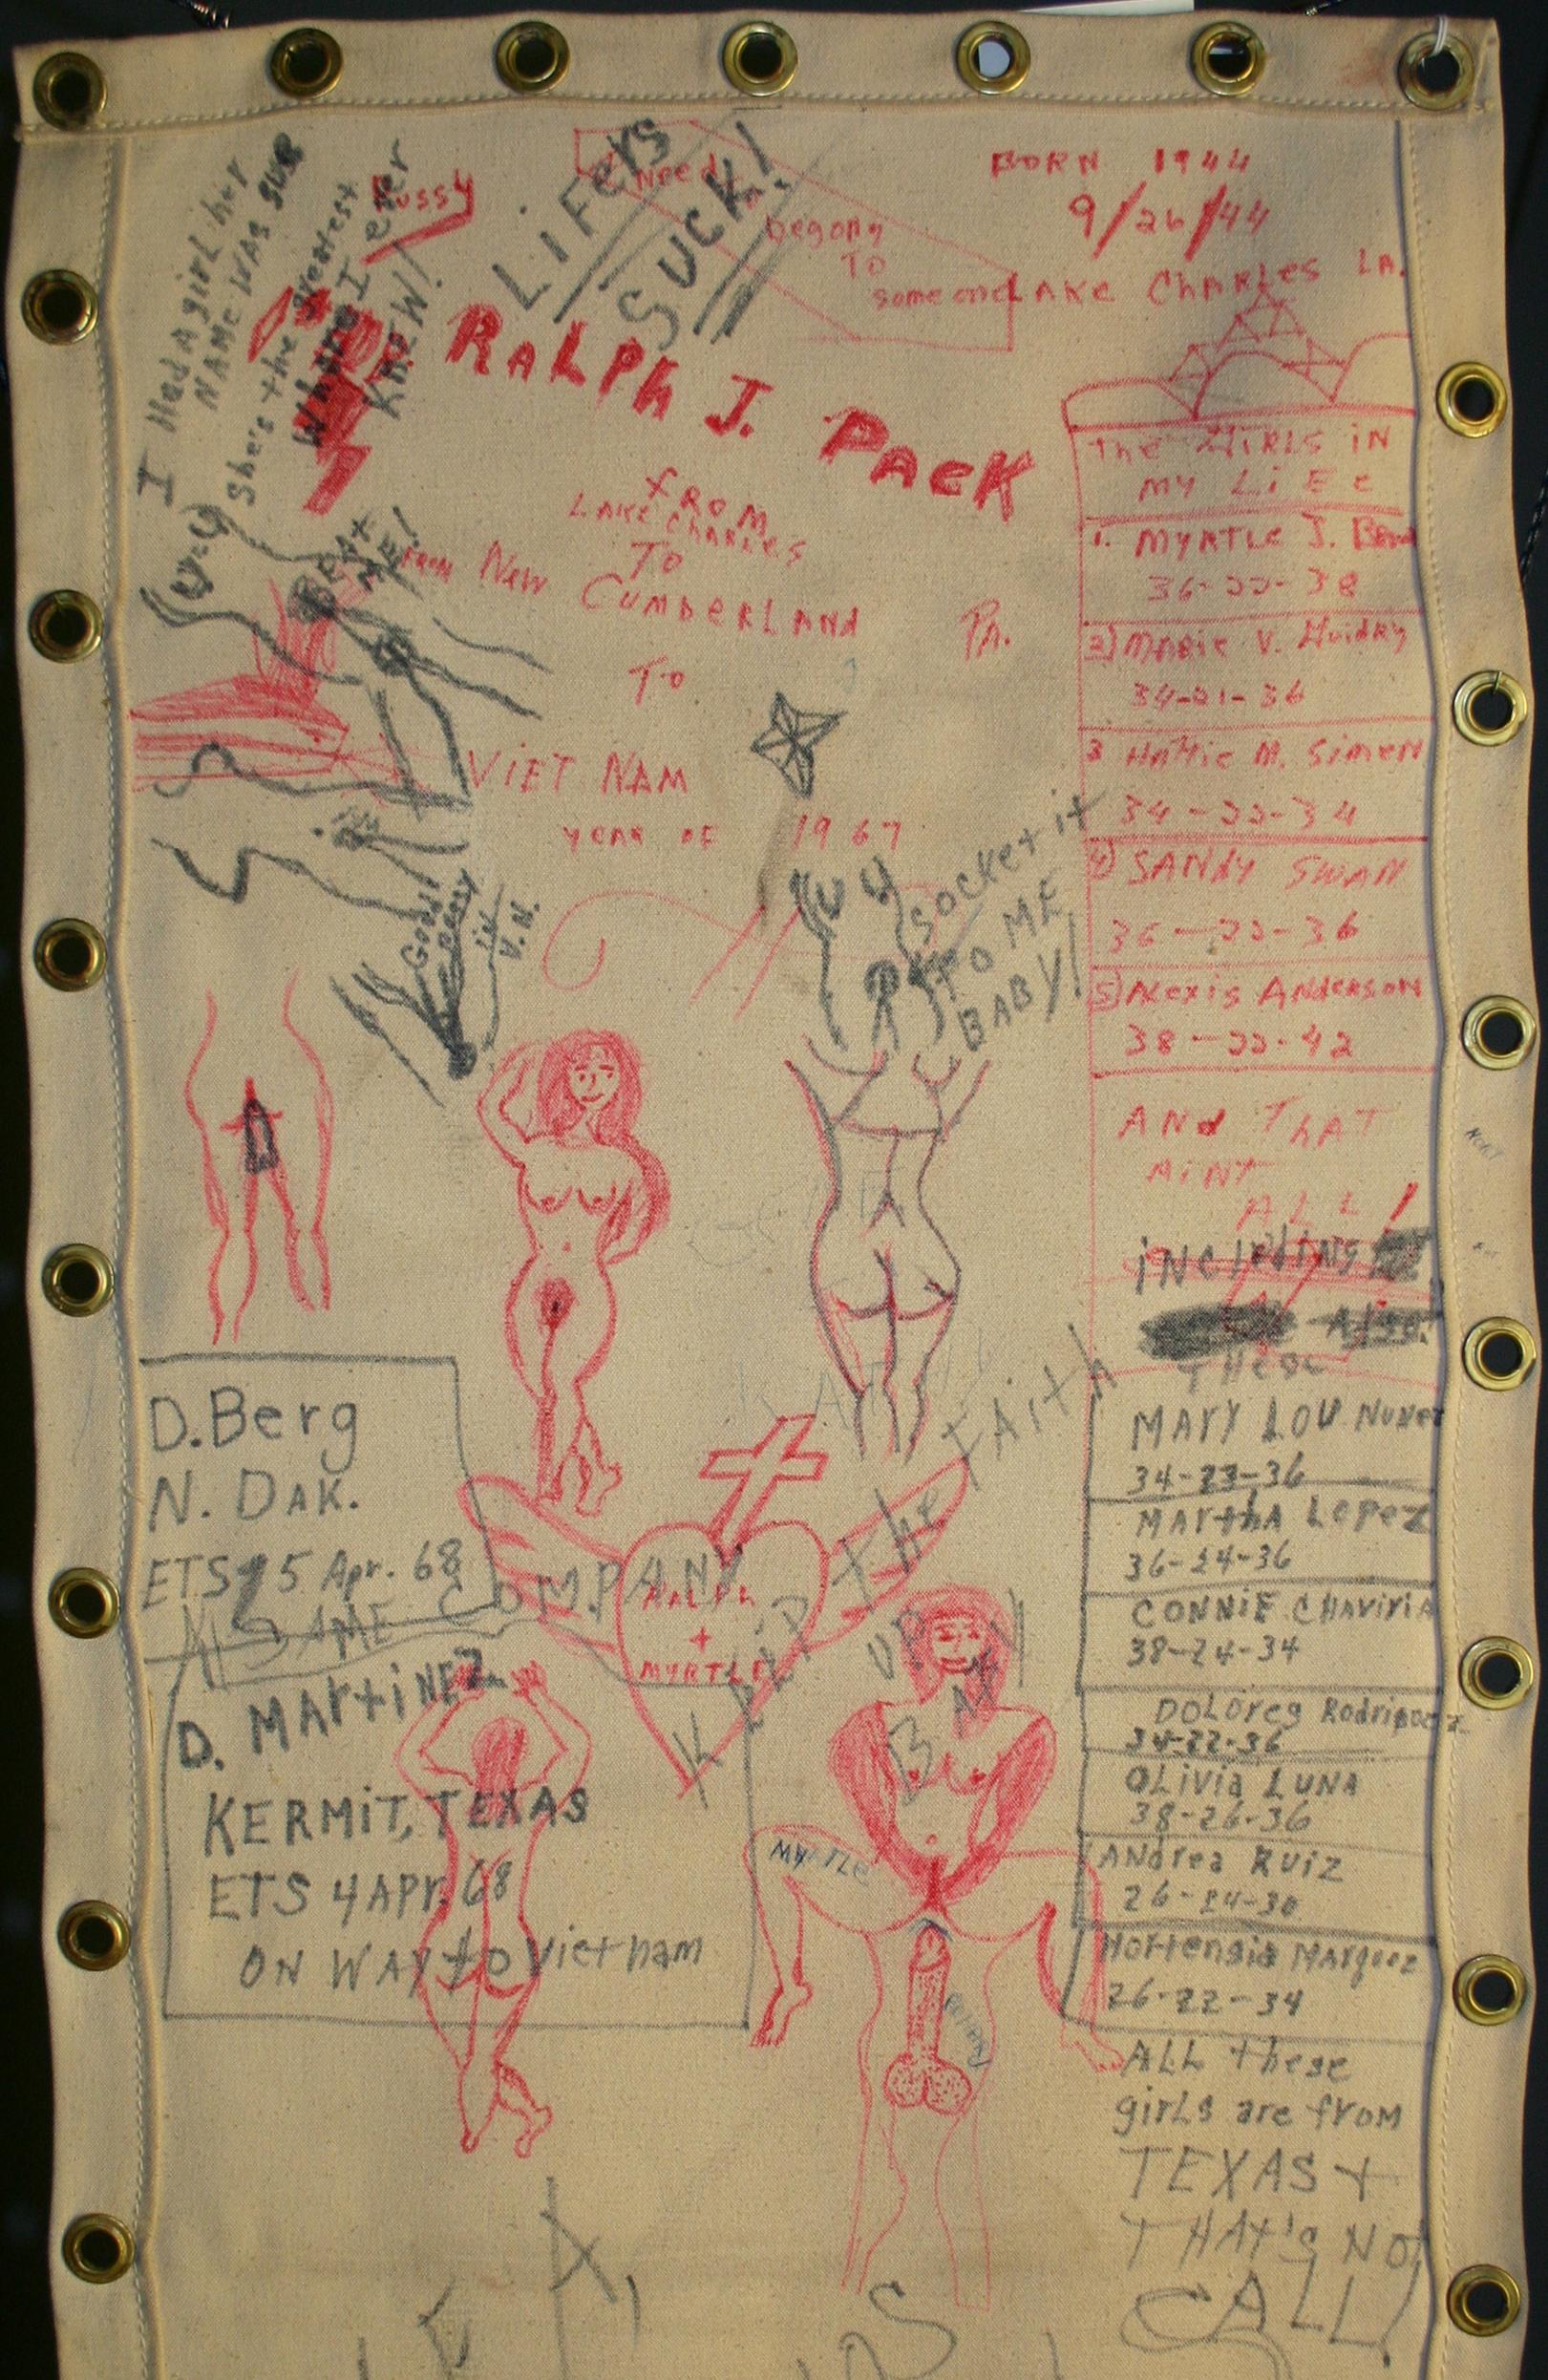 I Had A girl her
NAMe WAS SUE
She's the greatest
Whore I ever
KNEW!
Pussy
LIFers
SUCK!
Need
begong
To
someone
BORN 1944
9/26/44
LAKe ChARLes LA.
RALPh J. PAcK
fROM
LAKe ChARLes
To
FROM New CUMbeRLANd PA.
To
VIET NAM
yeAR oF 1967
EAT
ME!
Good
Pussy
in
V.N.
SOCKet it
TO ME
BABY!
The GiRLS iN
MY LiFe
1. MyRTLe J.
36-22-38
2) MARie V. Guidry
34-21-36
3 HATTie M. SimeN
34-22-34
4) SANdy SWAN
36-22-36
5) Alexis ANdeRSON
38-22-42
ANd ThAT
AiNT
ALL!
iNCLUdiNg
Also!
THese
MAry LOU
34-23-36
MArthA LOPeZ
36-24-36
CONNiE CHAViriA
38-24-34
DOLOreg Rodriguez
34-22-36
OLiViA LUNA
38-26-36
ANdrea RUiZ
26-24-30
Hortensia Marquez
26-22-34
ALL these
girLs are from
TEXAS +
THAt's NOt
ALL!
D. Berg
N. DAK.
ETS 15 Apr. 68
SAME COMPANY
RALPh
+
MYRTLE
KEEP THE FAitH
UP
BABY
D. MArtiNEZ
KERMiT, TEXAS
ETS 4 APr. 68
ON WAY to Vietnam
MYrTLe
Ralph